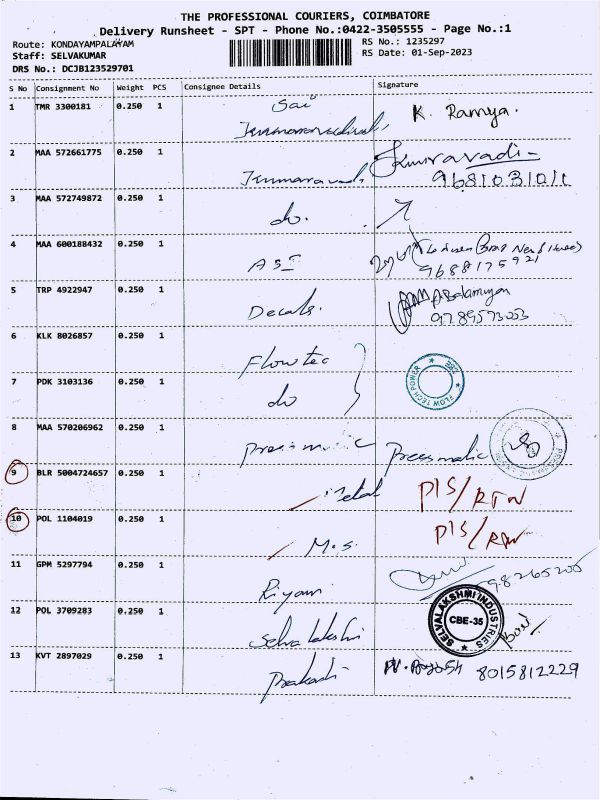 THE PROFESSIONAL COURIERS, COIMBATORE
Delivery Runsheet - SPT - Phone No.:0422-3505555 - Page No.:1
Route: KONDAYAMPALAYAM RS No.: 1235297
Staff: SELVAKUMAR RS Date: 01-Sep-2023
DRS No.: DCJB123529701
S No Consignment No Weight PCS Consignee Details Signature
1 TMR 3300181 0.250 1 Sai K. Ramya.
2 MAA 572661775 0.250 1
9681031011
3 MAA 572749872 0.250 1 do.
4 MAA 600188432 0.250 1
9688175921
5 TRP 4922947 0.250 1 Decals. Balamurugan
9789573053
6 KLK 8026857 0.250 1 Flowtec
FLOW TECH POWER
7 PDK 3103136 0.250 1 do
8 MAA 570206962 0.250 1 Pressmatic Pressmatic
9 BLR 5004724657 0.250 1 PIS/RTN
10 POL 1104019 0.250 1 M.S. PIS/RTN
11 GPM 5297794 0.250 1
12 POL 3709283 0.250 1 Selva lakshmi SELVALAKSHMI INDUSTRIES CBE-35
13 KVT 2897029 0.250 1 Prakash 8015812229